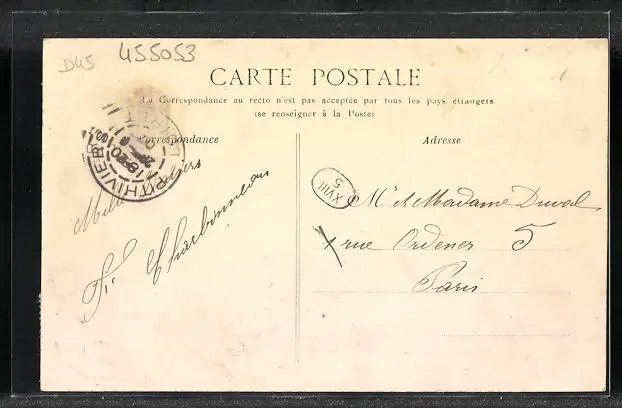 D45 455053
CARTE POSTALE
La Correspondance au recto n'est pas acceptée par tous les pays étrangers
(se renseigner à la Poste)
Correspondance
Adresse
PITHIVIERS
XVIII
5
Mr et Madame Duval
1 rue Ordener 5
Paris
Mille
Fr Charbonneau